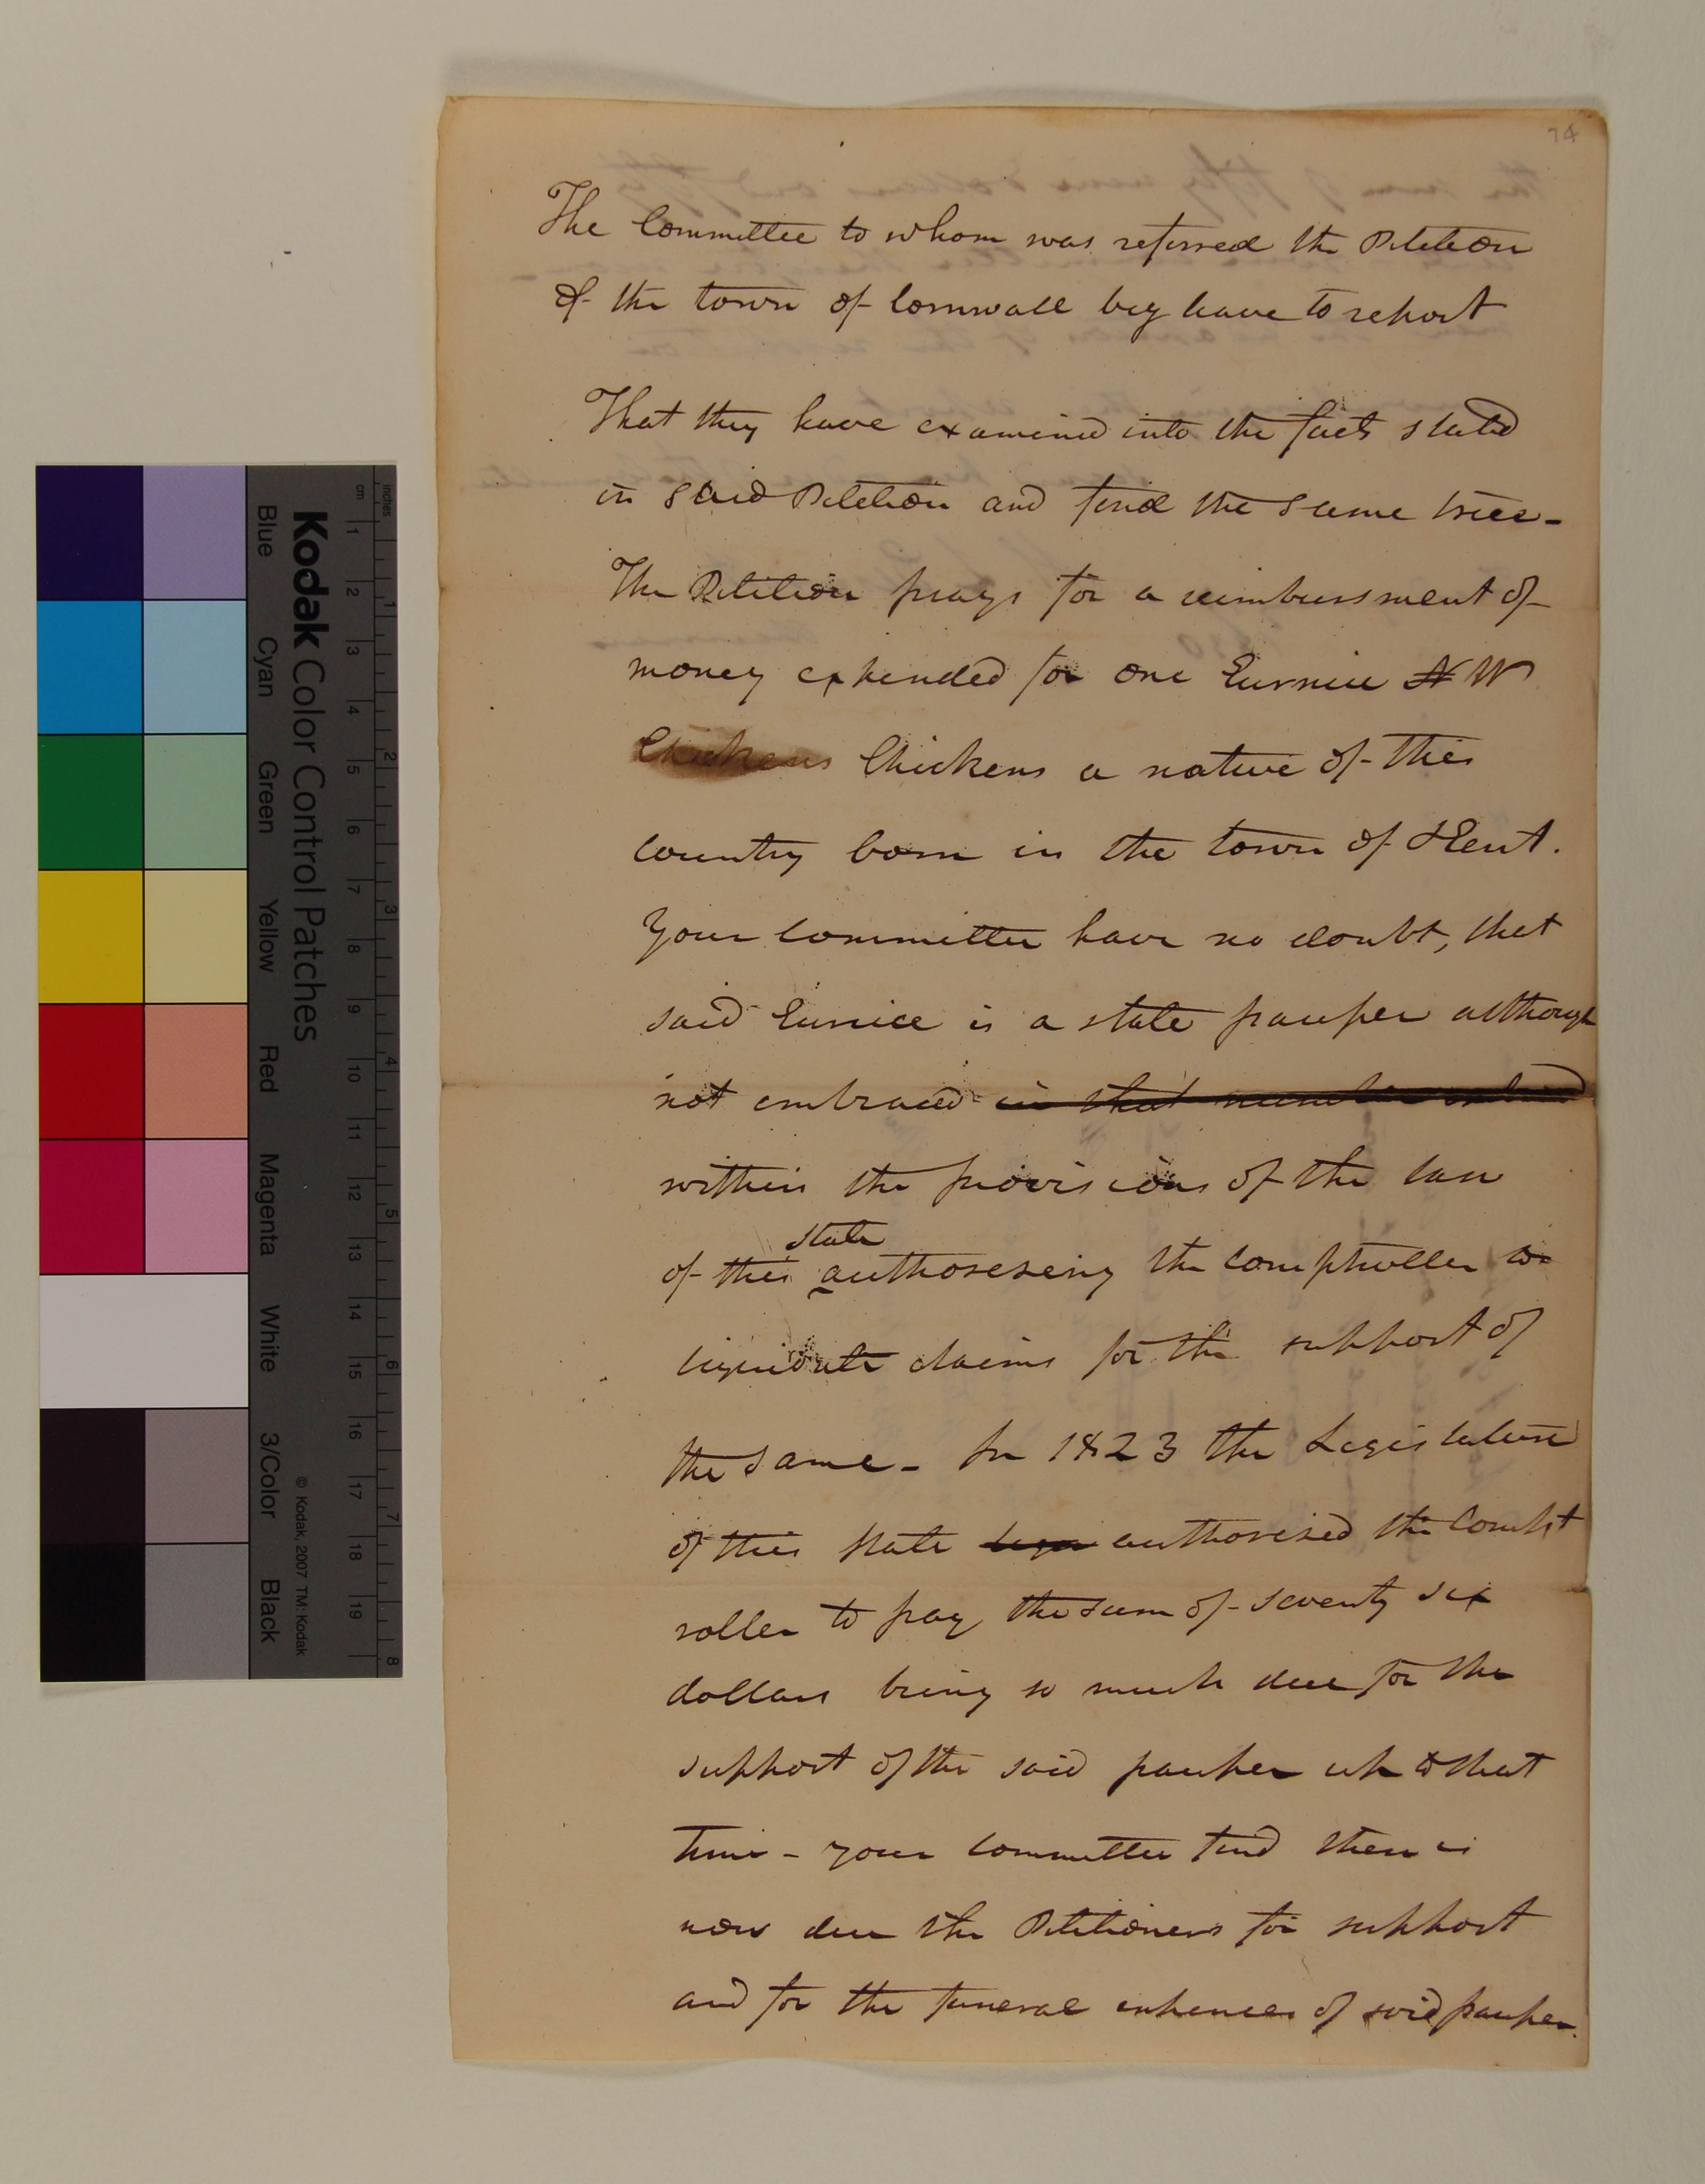 74
The Committee to whom was referred the Petition
of the town of Cornwall beg leave to report
That they have examined into the facts stated
in said Petition and find the same true -
The Petition prays for a reimbursment of
money expended for one Eunice N W
Chickens Chickens a native of this
country born in the town of Kent.
Your committee have no doubt, that
said Eunice is a state pauper although
not embraced in that
within the provisions of the law
state
of this authoreseing the comptroller to
liquidate claims for the support of
the same - In 1823 the Legislature
of this state authorised the Compt
roller to pay the sum of seventy six
dollars being so much due for the
support of the said pauper up to that
time - your committee find there is
now due the Petitioners for support
and for the funeral expences of said pauper.
Kodak Color Control Patches
© Kodak, 2007 TM: Kodak
Blue
Cyan
Green
Yellow
Red
Magenta
White
3/Color
Black
inches
cm
1
2
3
4
5
6
7
8
9
10
11
12
13
14
15
16
17
18
19
1
2
3
4
5
6
7
8